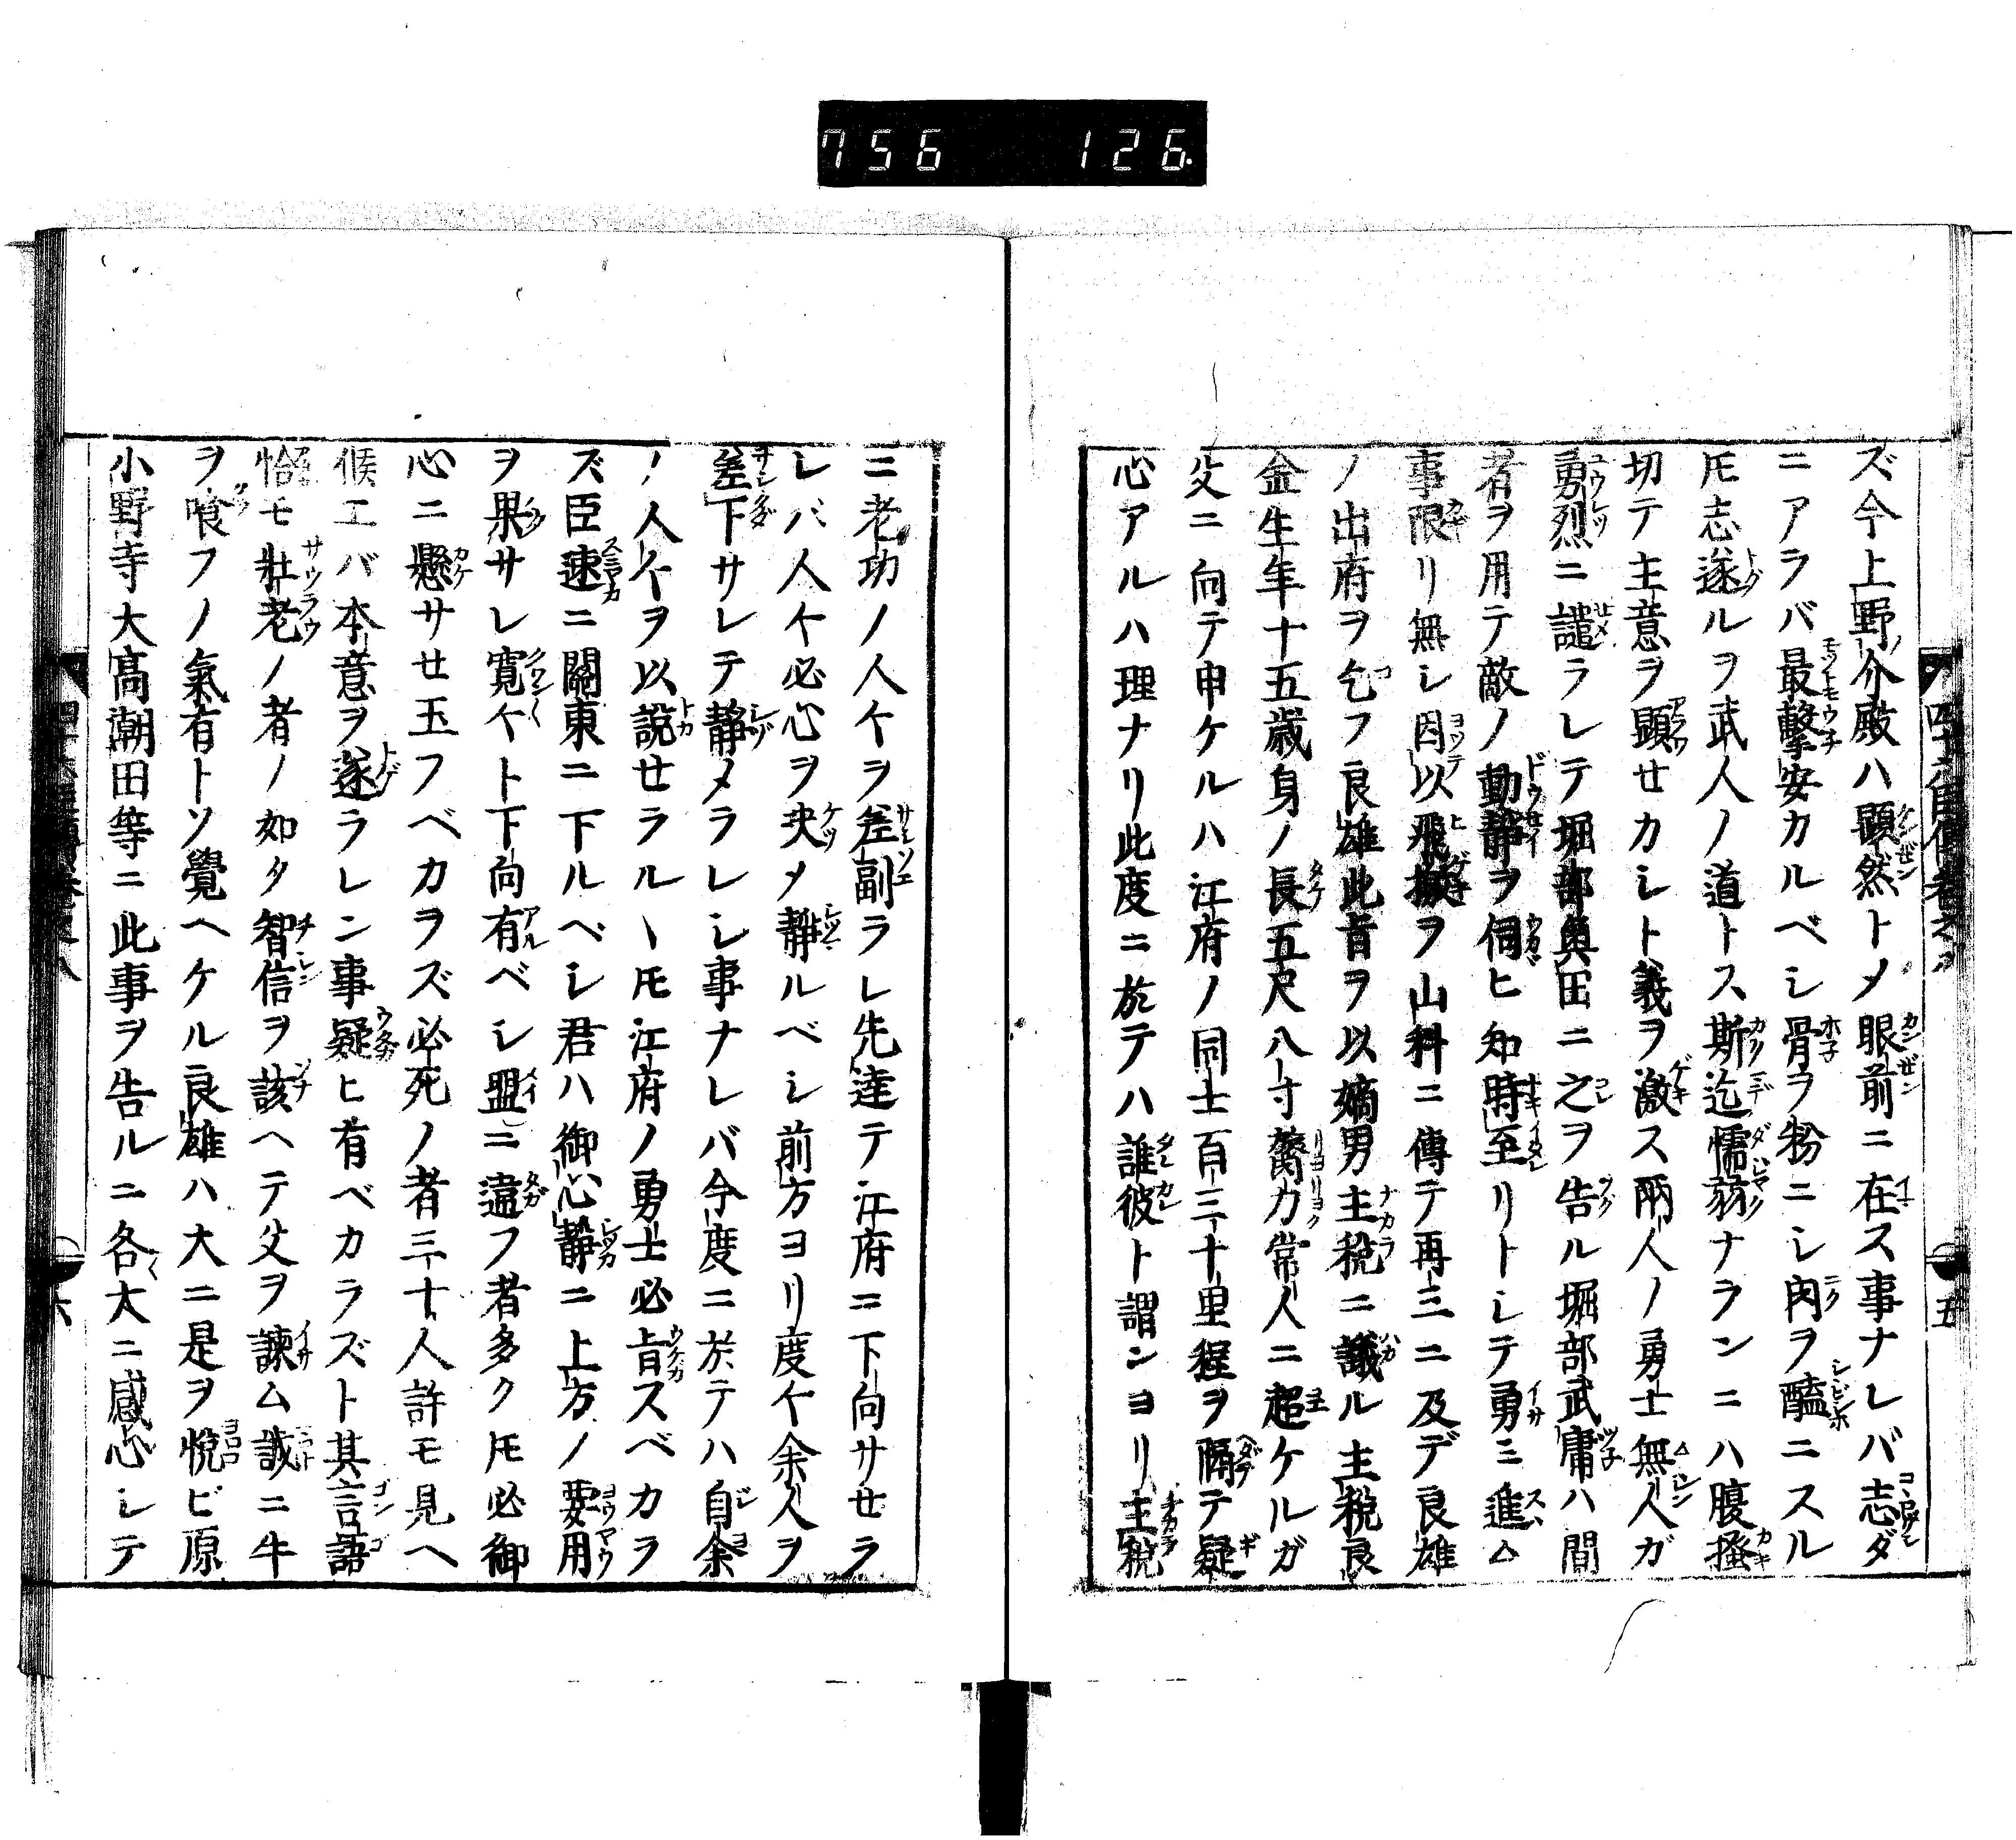 756 126.
ズ今上野介殿ハ顕然トメ眼前ニ在ス事ナレバ志ダ
ニアラバ最撃安カルベシ骨ヲ粉ニシ肉ヲ醢ニスル
𪜈志遂ルヲ武人ノ道トス斯迄懦弱ナランニハ腹掻
切テ主意ヲ顕せカシト義ヲ激ス兩人ノ勇士無人ガ
勇烈ニ譴ラレテ堀部奥田ニ之ヲ告ル堀部武庸ハ間
者ヲ用テ敵ノ動静ヲ伺ヒ知時至リトシテ勇ミ進ム
事限リ無シ因以飛檄ヲ山科ニ傳テ再三ニ及デ良雄
ノ出府ヲ乞フ良雄此旨ヲ以嫡男主税ニ議ル主税良
金生年十五歳身ノ長五尺八寸膂力常人ニ超ケルガ
父ニ向テ申ケルハ江府ノ同士百三十里程ヲ隔テ疑
心アルハ理ナリ此度ニ於テハ誰彼ト謂ンヨリ主税
ニ老功ノ人々ヲ差副ラレ先達テ江府ニ下向サせラ
レバ人々必心ヲ决メ静ルベシ前方ヨリ度々余人ヲ
差下サレテ静メラレシ事ナレバ今度ニ於テハ自余
ノ人々ヲ以説せラルヽ𪜈江府ノ勇士必肯スベカラ
ズ臣速ニ關東ニ下ルベシ君ハ御心静ニ上方ノ要用
ヲ果サレ寛々ト下向有ベシ盟ニ違フ者多ク𪜈必御
心ニ懸サせ玉フベカラズ必死ノ者三十人許モ見ヘ
候エバ本意ヲ遂ラレン事疑ヒ有ベカラズト其言語
恰モ壮老ノ者ノ如タ智信ヲ該ヘテ父ヲ諫ム誠ニ牛
ヲ喰フノ氣有トソ覺ヘケル良雄ハ大ニ是ヲ悦ビ原
小野寺大髙潮田等ニ此事ヲ告ルニ各大ニ感心シテ
五
六